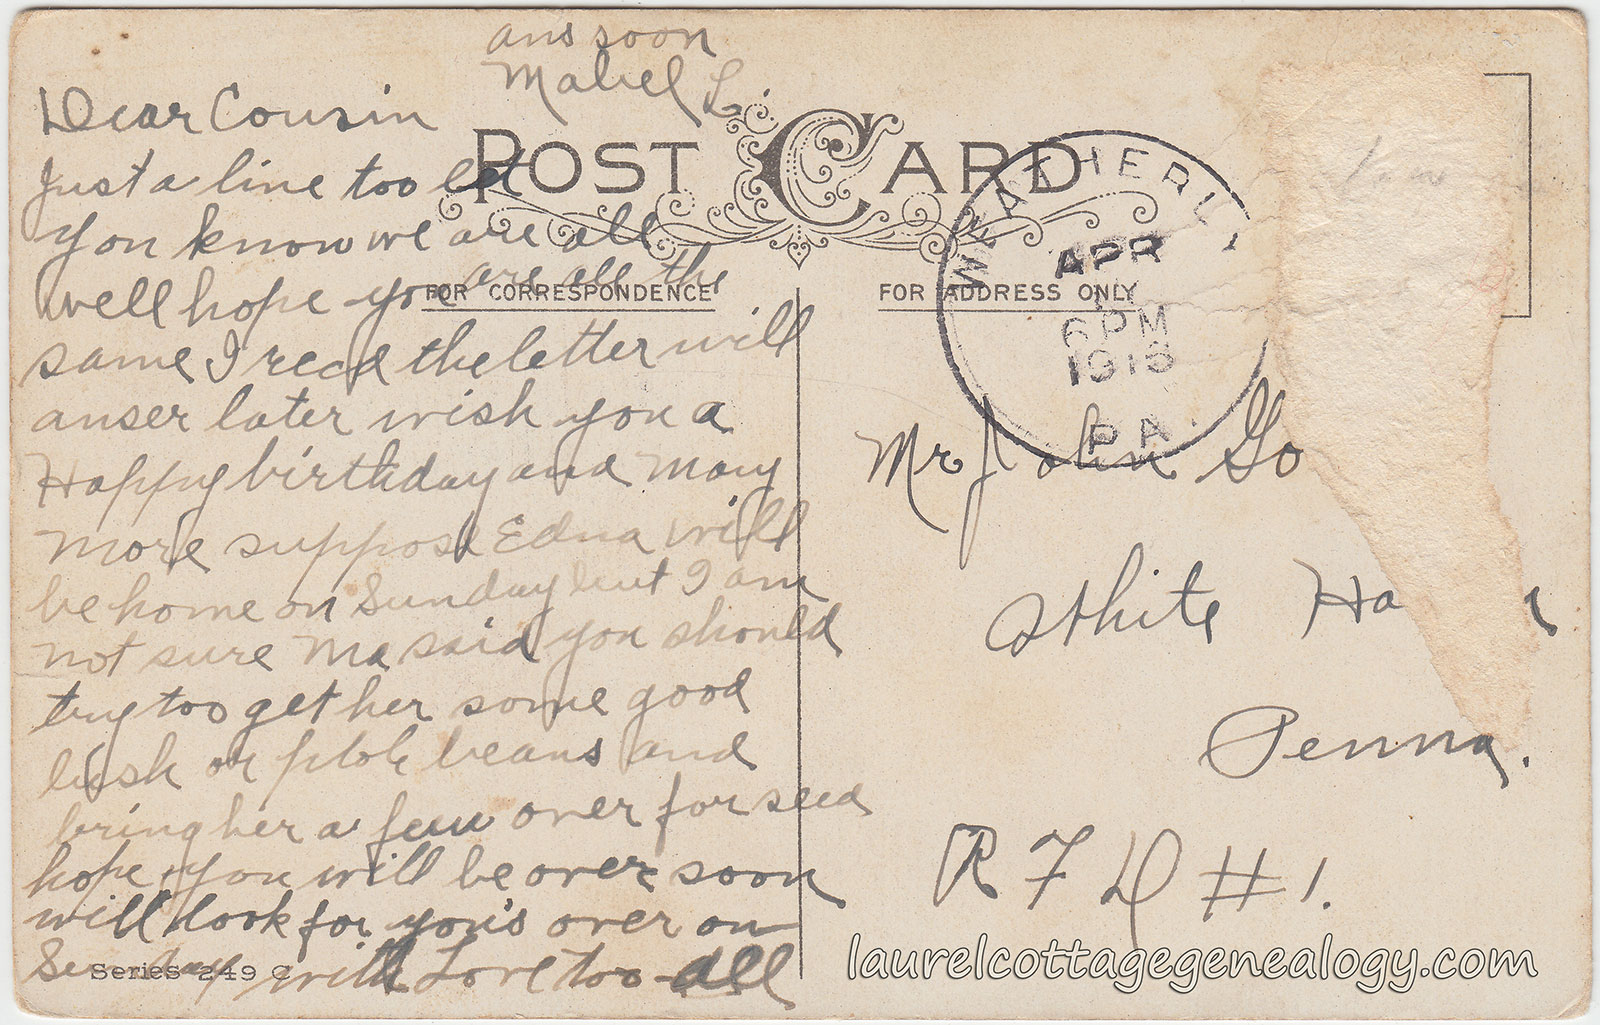 ans soon
Mabel L.
Dear Cousin
Just a line too let
you know we are all
well hope you are all the
same I recd the letter will
anser later wish you a
Happy birthday and many
more suppose Edna will
be home on Sunday but I am
not sure Ma said you should
try too get her some good
bush or pole beans and
bring her a few over for seed
hope you will be over soon
will look for you's over on
Sunday with Love too all
Series 249 C
POST CARD
FOR CORRESPONDENCE
FOR ADDRESS ONLY
WEATHERLY
APR
6 PM
PA.
Mr John Go
White Ha n
Penna.
R F D # 1.
laurelcottagegenealogy.com